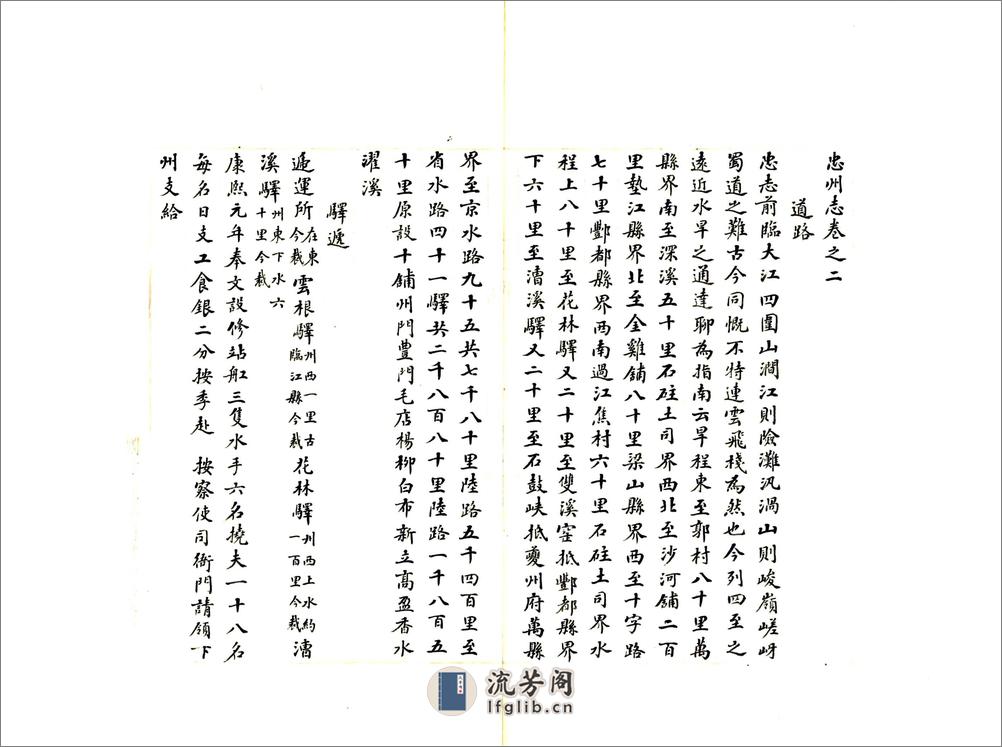 忠州志卷之二
道路
忠志前臨大江四圍山澗江則險灘汎渦山則峻嶺嵯岈
蜀道之難古今同慨不特連雲飛棧為然也今列四至之
遠近水旱之通達聊為指南云旱程東至郭村八十里萬
縣界南至深溪五十里石砫土司界西北至沙河舖二百
里墊江縣界北至金雞舖八十里梁山縣界西至十字路
七十里酆都縣界西南過江焦村六十里石砫土司界水
程上八十里至花林驛又二十里至雙溪窰抵酆都縣界
下六十里至漕溪驛又二十里至石鼓峽抵夔州府萬縣
界至京水路九十五共七千八十里陸路五千四百里至
省水路四十一驛共二千八百八十里陸路一千八百五
十里原設十舖州門豊門毛店楊柳白布新立高盈香水
濯溪
驛遞
遞運所在東今裁雲根驛州西一里古臨江縣今裁花林驛州西上水約一百里今裁漕
溪驛州東下水六十里今裁
康熙元年奉文設修站船三隻水手六名撓夫一十八名
每名日支工食銀二分按季赴 按察使司衙門請領下
州支給
流芳阁
lfglib.cn